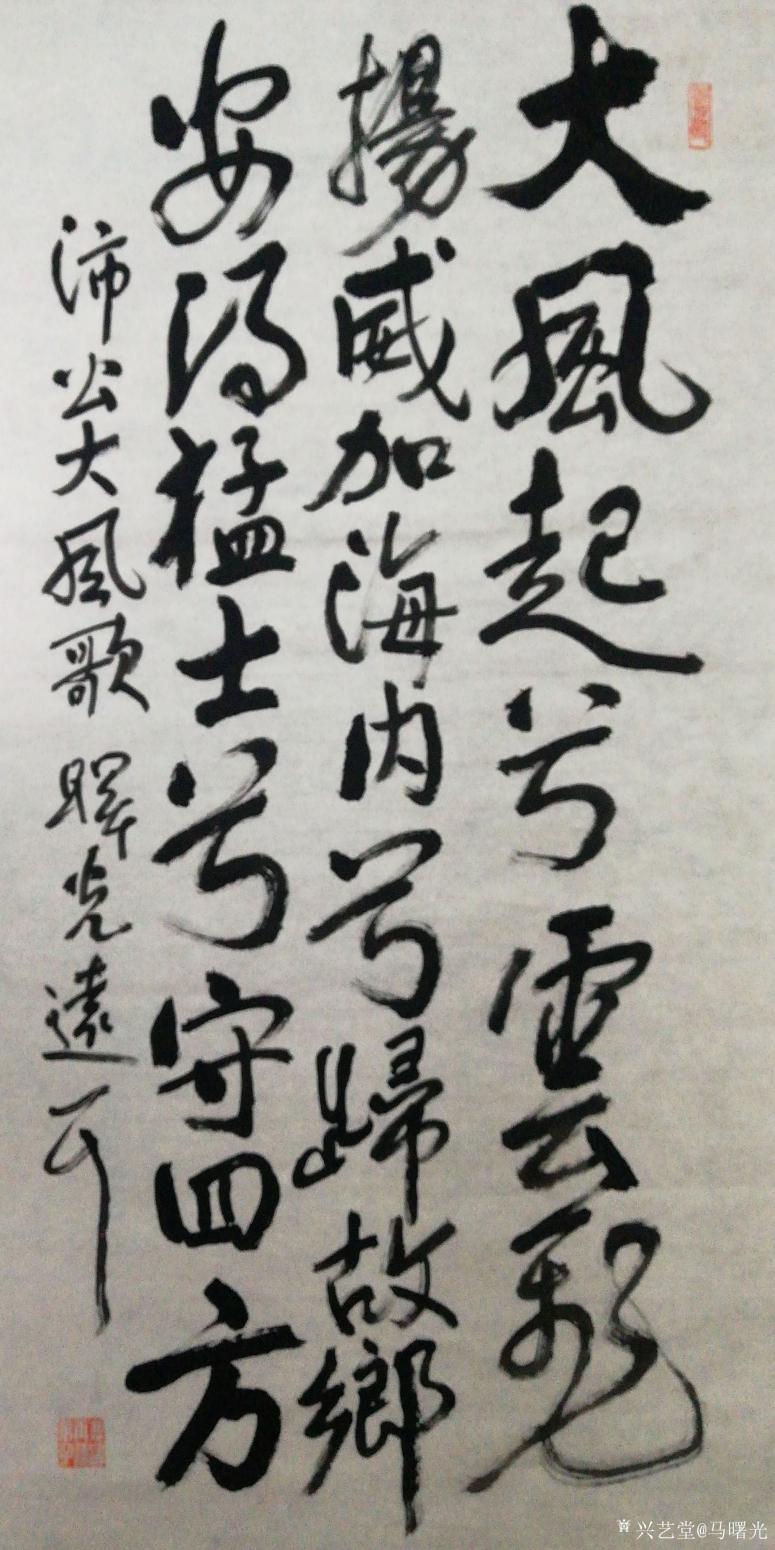 大風起兮雲飛
揚威加海内兮歸故鄉
安得猛士兮守四方
沛公大風歌 曙光遠可
兴艺堂@马曙光